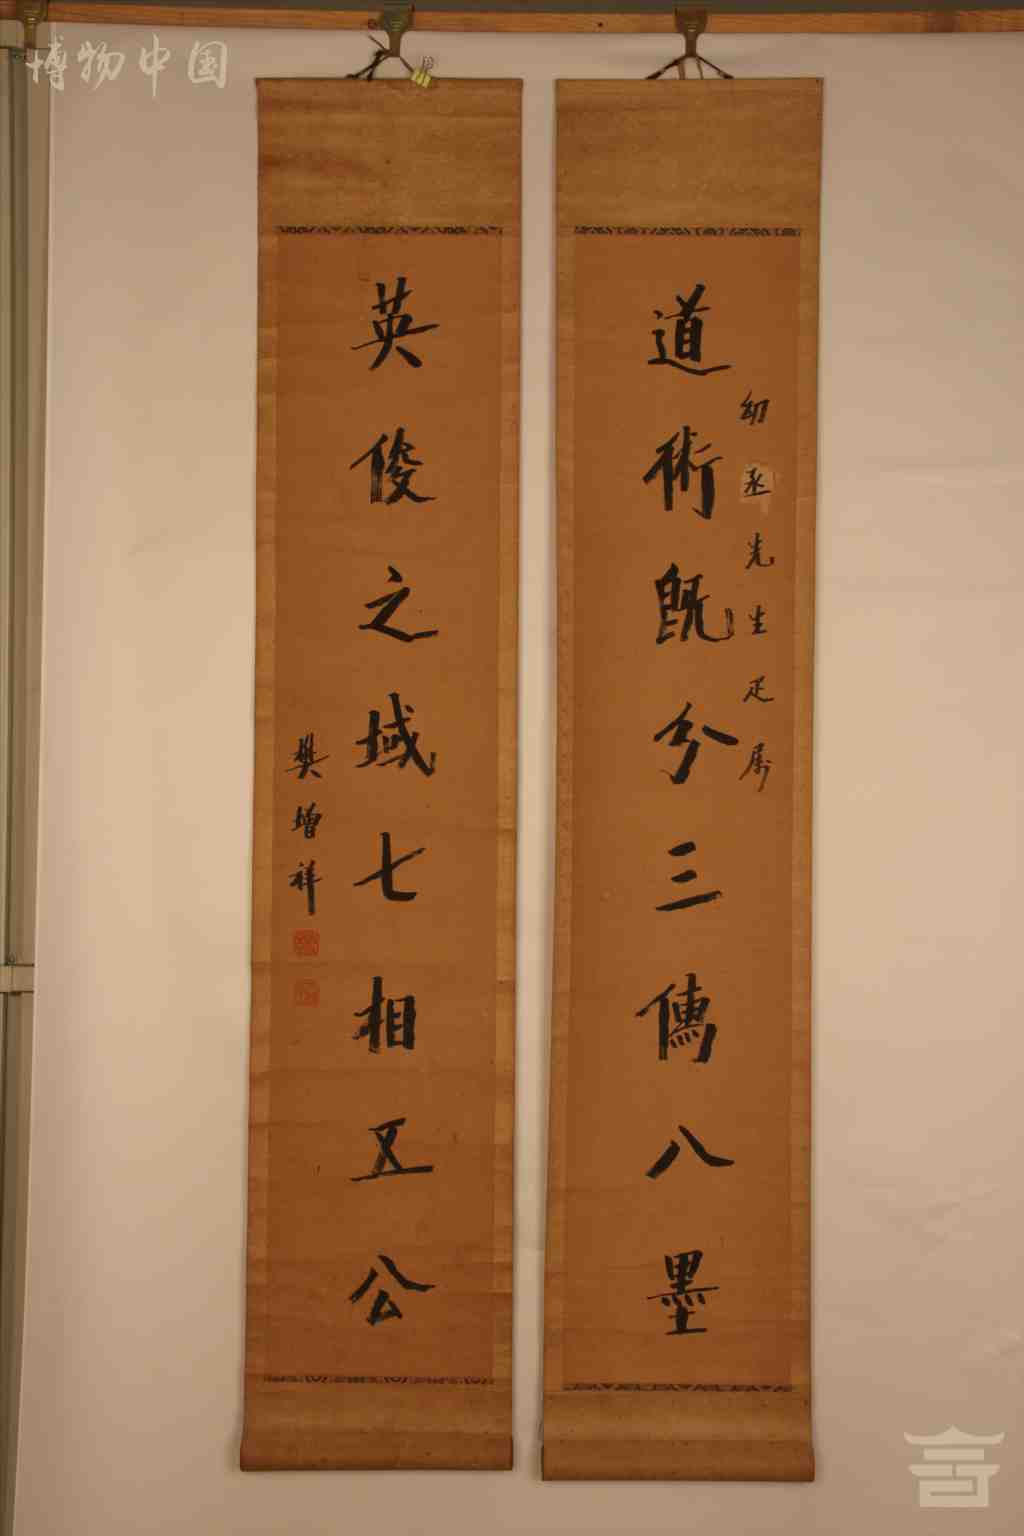 博物中国
道術既分三傳八墨
幼丞先生疋属
英俊之域七相五公
樊增祥